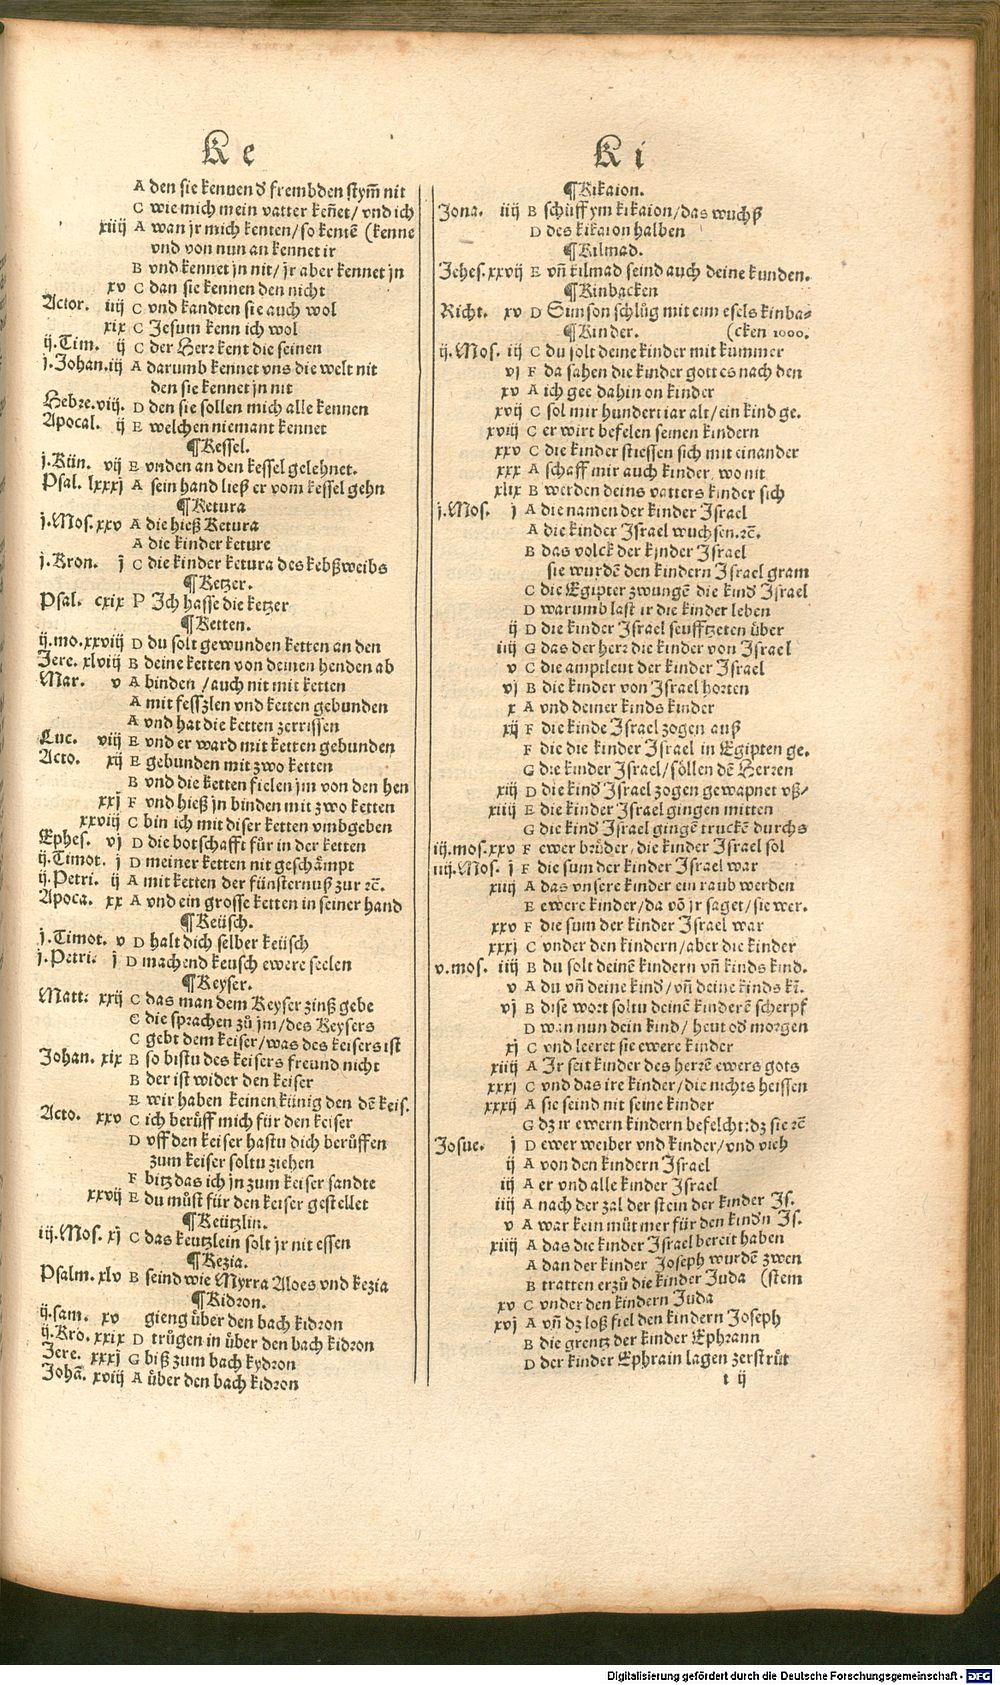 Ke
A den sie kennen d̕ frembden stym̃ nit
C wie mich mein vatter keñet/ vnd ich
xiiij A wan jr mich kenten/so kentē (kenne
vnd von nun an kennet ir
B vnd kennet jn nit/ jr aber kennet jn
xv C dan sie kennen den nicht
Actor. iiij C vnd kandten sie auch wol
xix C Jesum kenn ich wol
ij.Tim. ij C der Herr kent die seinen
j.Johan.iij A darumb kennet vns die welt nit
den sie kennet jn nit
Hebre.viij. D den sie sollen mich alle kennen
Apocal. ij E welchen niemant kennet
¶Kessel.
j.Kün. vij E vnden an den kessel gelehnet.
Psal. lxxxj A sein hand ließ er vom kessel gehn
¶Ketura
j.Mos.xxv A die hieß Ketura
A die kinder keture
j.Kron. j C die kinder ketura des kebßweibs
¶Ketzer.
Psal. cxix P Ich hasse die ketzer
¶Ketten.
ij.mo.xxviij D du solt gewunden ketten an den
Jere. xlviij B deine ketten von deinen henden ab
Mar. v A binden /auch nit mit ketten
A mit fesszlen vnd ketten gebunden
A vnd hat die ketten zerrissen
Luc. viij E vnd er ward mit ketten gebunden
Acto. xij E gebunden mit zwo ketten
B vnd die ketten fielen jm von den hen
xxj F vnd hieß jn binden mit zwo ketten
xxviij C bin ich mit diser ketten vmbgeben
Ephes. vj D die botschafft für in der ketten
ij.Timot. j D meiner ketten nit geschämpt
ij.Petri. ij A mit ketten der fünsternuß zur ꝛc̄.
Apoca. xx A vnd ein grosse ketten in seiner hand
¶Keüsch.
j.Timot. v D halt dich selber keüsch
j.Petri. j D machend keusch ewere seelen
¶Keyser.
Matt. xxij C das man dem Keyser zinß gebe
C die sprachen zů jm/des Keysers
C gebt dem keiser/was des keisers ist
Johan. xix B so bistu des keisers freund nicht
B der ist wider den keiser
E wir haben keinen künig den dē keis.
Acto. xxv C ich berüff mich für den keiser
D vff den keiser hastu dich berüffen
zum keiser soltu ziehen
F bitz das ich jn zum keiser sandte
xxvij E du můst für den keiser gestellet
¶Keützlin.
iij.Mos. xj C das keutzlein solt jr nit essen
¶Kezia.
Psalm. xlv B seind wie Myrra Aloes vnd kezia
¶Kidron.
ij.sam. xv gieng über den bach kidron
ij.Kro. xxix D trůgen in über den bach kidron
Jere. xxxj G biß zum bach kydron
Johā. xviij A über den bach kidron
Ki
¶Kikaion.
Jona. iiij B schůff ym kikaion/das wuchß
D des kikaion halben
¶Kilmad.
Jehes.xxvij E vñ kilmad seind auch deine kunden.
¶Kinbacken
Richt. xv D Sunson schlůg mit ein esels kinba-
¶Kinder. (cken 1000.
ij.Mos. iij C du solt deine kinder mit kummer
vj F da sahen die kinder gottes nach den
xv A ich gee dahin on kinder
xvij C sol mir hundert iar alt/ein kind ge.
xviij C er wirt befelen seinen kindern
xxv C die kinder stiessen sich mit einander
xxx A schaff mir auch kinder, wo nit
xlix B werden deins vatters kinder sich
j.Mos. j A die namen der kinder Israel
A die kinder Israel wuchsen.ꝛc̄.
B das volck der kinder Israel
sie wurdē den kindern Israel gram
C die Egipter zwungē die kind̕ Israel
D warumb last ir die kinder leben
ij D die kinder Israel seufftzeten über
iiij G das der herr die kinder von Israel
v C die amptleut der kinder Israel
vj B die kinder von Israel horten
x A vnd deiner kinds kinder
xij F die kinde Israel zogen auß
F die die kinder Israel in Egipten ge.
G die kinder Israel/söllen dē Herren
xiij D die kind̕ Israel zogen gewapnet vß/
xiiij E die kinder Israel gingen mitten
G die kind̕ Israel gingē truckē durchs
iij.mos.xxv F ewer brüder/die kinder Israel sol
iiij.Mos. j F die sum der kinder Israel war
xiiij A das vnsere kinder ein raub werden
E ewere kinder/da võ jr saget/sie wer.
xxv F die sum der kinder Israel war
xxxj C vnder den kindern/aber die kinder
v.mos. iiij B du solt deinē kindern vñ kinds kind.
v A du vñ deine kind̕/vñ deine kinds kī.
vj B dise wort soltu deinē kinderē scherpf
D wan nun dein kind/ heut od̕ morgen
xj C vnd leeret sie ewere kinder
xiiij A Ir seit kinder des herrē ewers gots
xxxj C vnd das ire kinder/die nichts heissen
xxxij A sie seind nit seine kinder
G dz ir ewern kindern befelcht:dz sie ꝛc̄
Josue. j D ewer weiber vnd kinder/vnd vieh
ij A von den kindern Israel
iij A er vnd alle kinder Israel
iiij A nach der zal der stein der kinder Is.
v A war kein můt mer für den kind̕n Is.
xiiij A das die kinder Israel bereit haben
A dan der kinder Joseph wurdē zwen
B tratten erzů die kinder Juda (stem
xv C vnder den kindern Juda
xvj A vñ dz loß fiel den kindern Joseph
B die grentz der kinder Ephrann
D der kinder Ephrain lagen zerströt
t ij
Digitalisierung gefördert durch die Deutsche Forschungsgemeinschaft - DFG